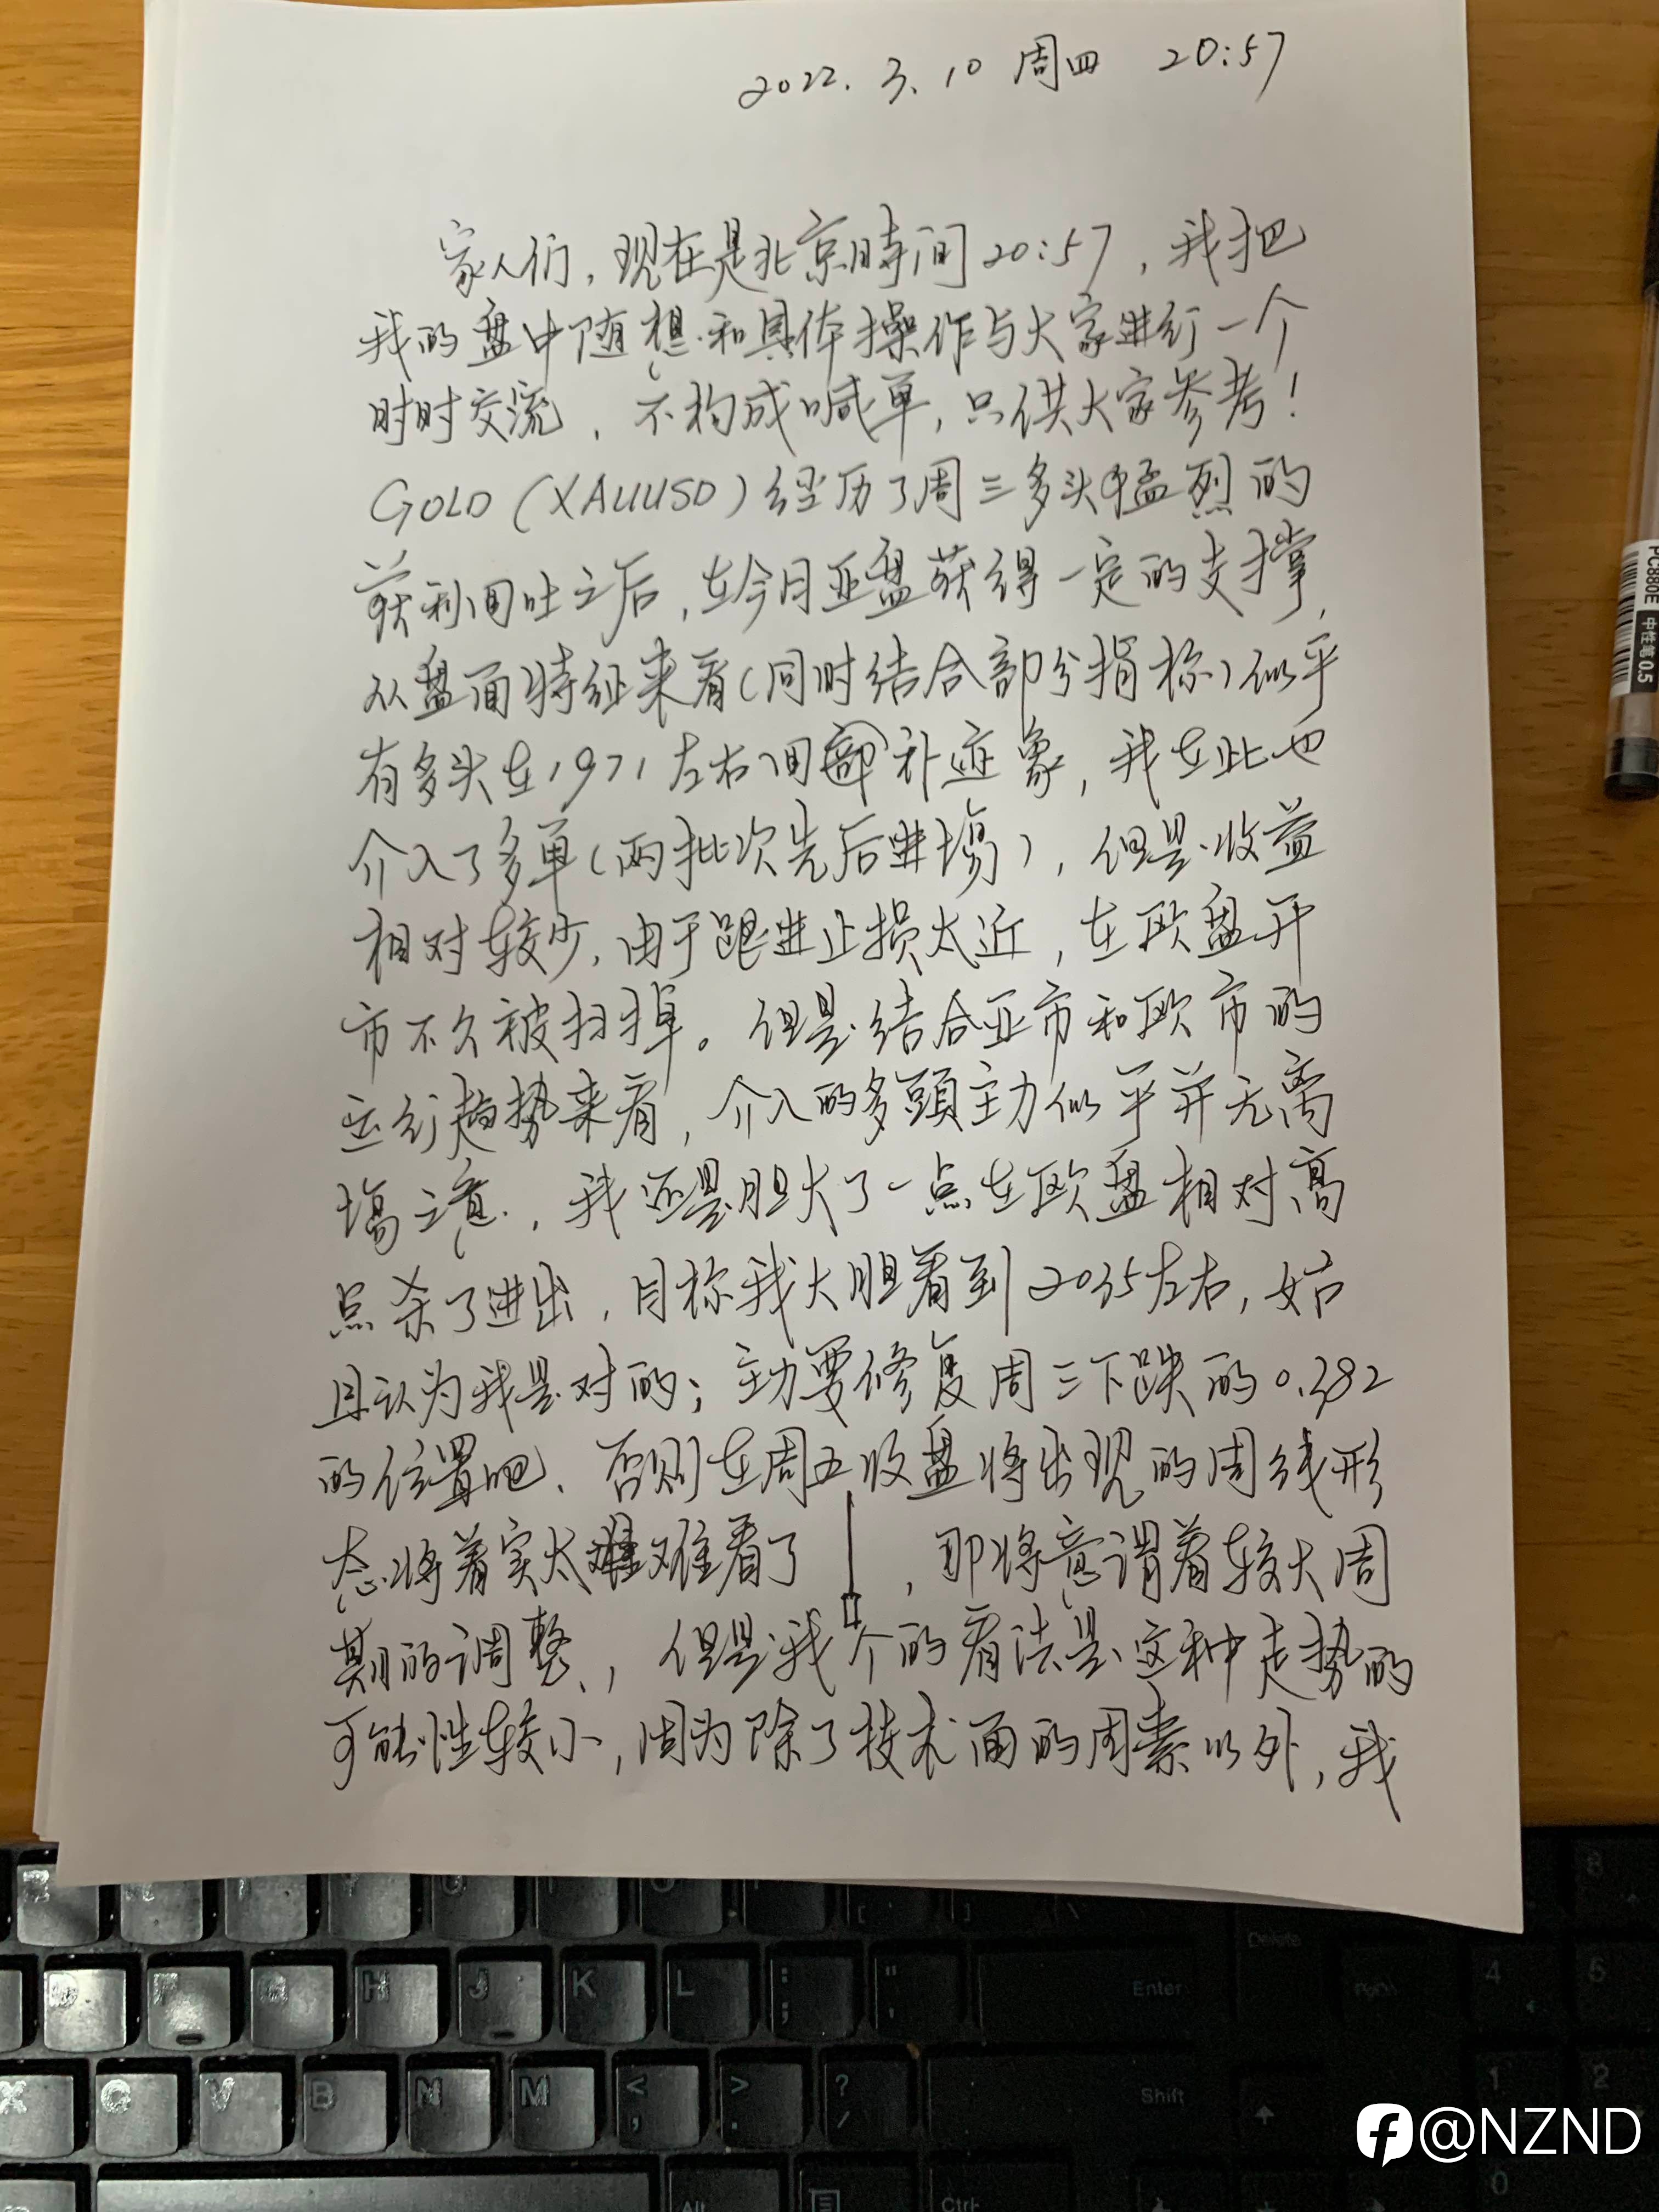 2022.3.10 周四 20:57
家人们,现在是北京時间20:57,我把
我的盘中随想和具体操作与大家进行一个
时时交流,不构成喊单,只供大家参考!
GOLD(XAUUSD)经历了周三多头猛烈的
获利回吐之后,在今日亚盘获得一定的支撑,
从盘面特征来看(同时结合部分指标)似乎
有多头在1971左右回补迹象,我在此也
介入了多单(两批次先后进場),但是收益
相对较少,由于跟进止损太近,在欧盘开
市不久被扫掉。但是结合亚市和欧市的
运行趋势来看,介入的多頭主力似乎并无离
場之意,我还是胆大了一点在欧盘相对高
点杀了进出,目标我大胆看到2035左右,姑
且认为我是对的;主力要修复周三下跌的0.382
的位置吧、否则在周五收盘将出现的周线形
态将着实太难看了,即将意谓着较大周
期的调整,但是我个的看法是这种走势的
可能性较小,因为除了技术面的因素以外,我
PC880E 中性笔0.5
D F G H J K L : ; " ' Enter
X C V B N M < , > . ? / Shift 1 2
Alt Ctrl 0
Delete PgDn 4 5
@NZND